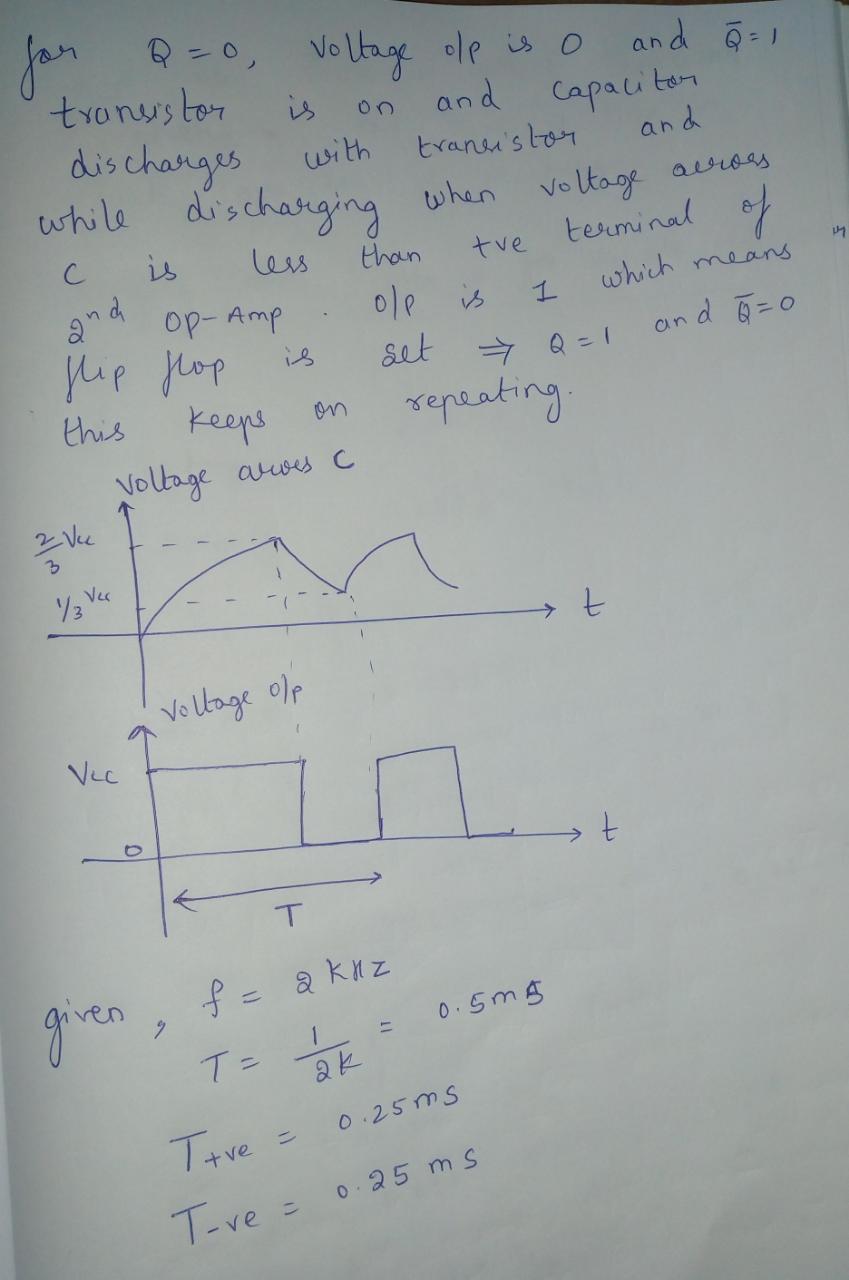 for Q = 0, Voltage o/p is 0 and Q̄ = 1
transistor is on and capacitor
discharges with transistor and
while discharging when voltage across
C is less than +ve terminal of
2nd Op-Amp. o/p is 1 which means
flip flop is set ⇒ Q = 1 and Q̄ = 0
this keeps on repeating.
Voltage across C
2/3 Vcc
1/3 Vcc
t
Voltage o/p
Vcc
0
t
T
given, f = 2 KHZ
T = 1/2K = 0.5ms
T+ve = 0.25ms
T-ve = 0.25 ms